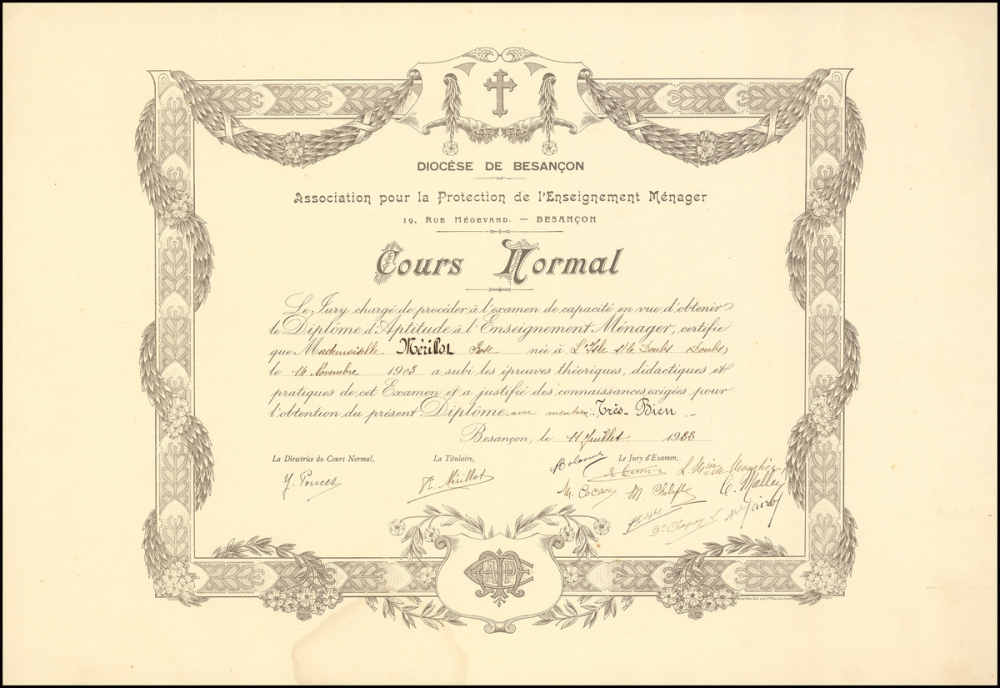 DIOCÈSE DE BESANÇON
Association pour la Protection de l'Enseignement Ménager
19, RUE MÉGEVAND. — BESANÇON
Cours Normal
Le Jury chargé de procéder à l'examen de capacité en vue d'obtenir
le Diplôme d'Aptitude à l'Enseignement Ménager, certifie
que Mademoiselle Mérillot née à L'Isle s/le Doubs Doubs
le 14 Novembre 1903 a subi les épreuves théoriques, didactiques et
pratiques de cet Examen et a justifié des connaissances exigées pour
l'obtention du présent Diplôme, avec mention Très-Bien
Besançon, le 11 Juillet 1923
La Directrice du Cours Normal, La Titulaire, Le Jury d'Examen,
Mérillot